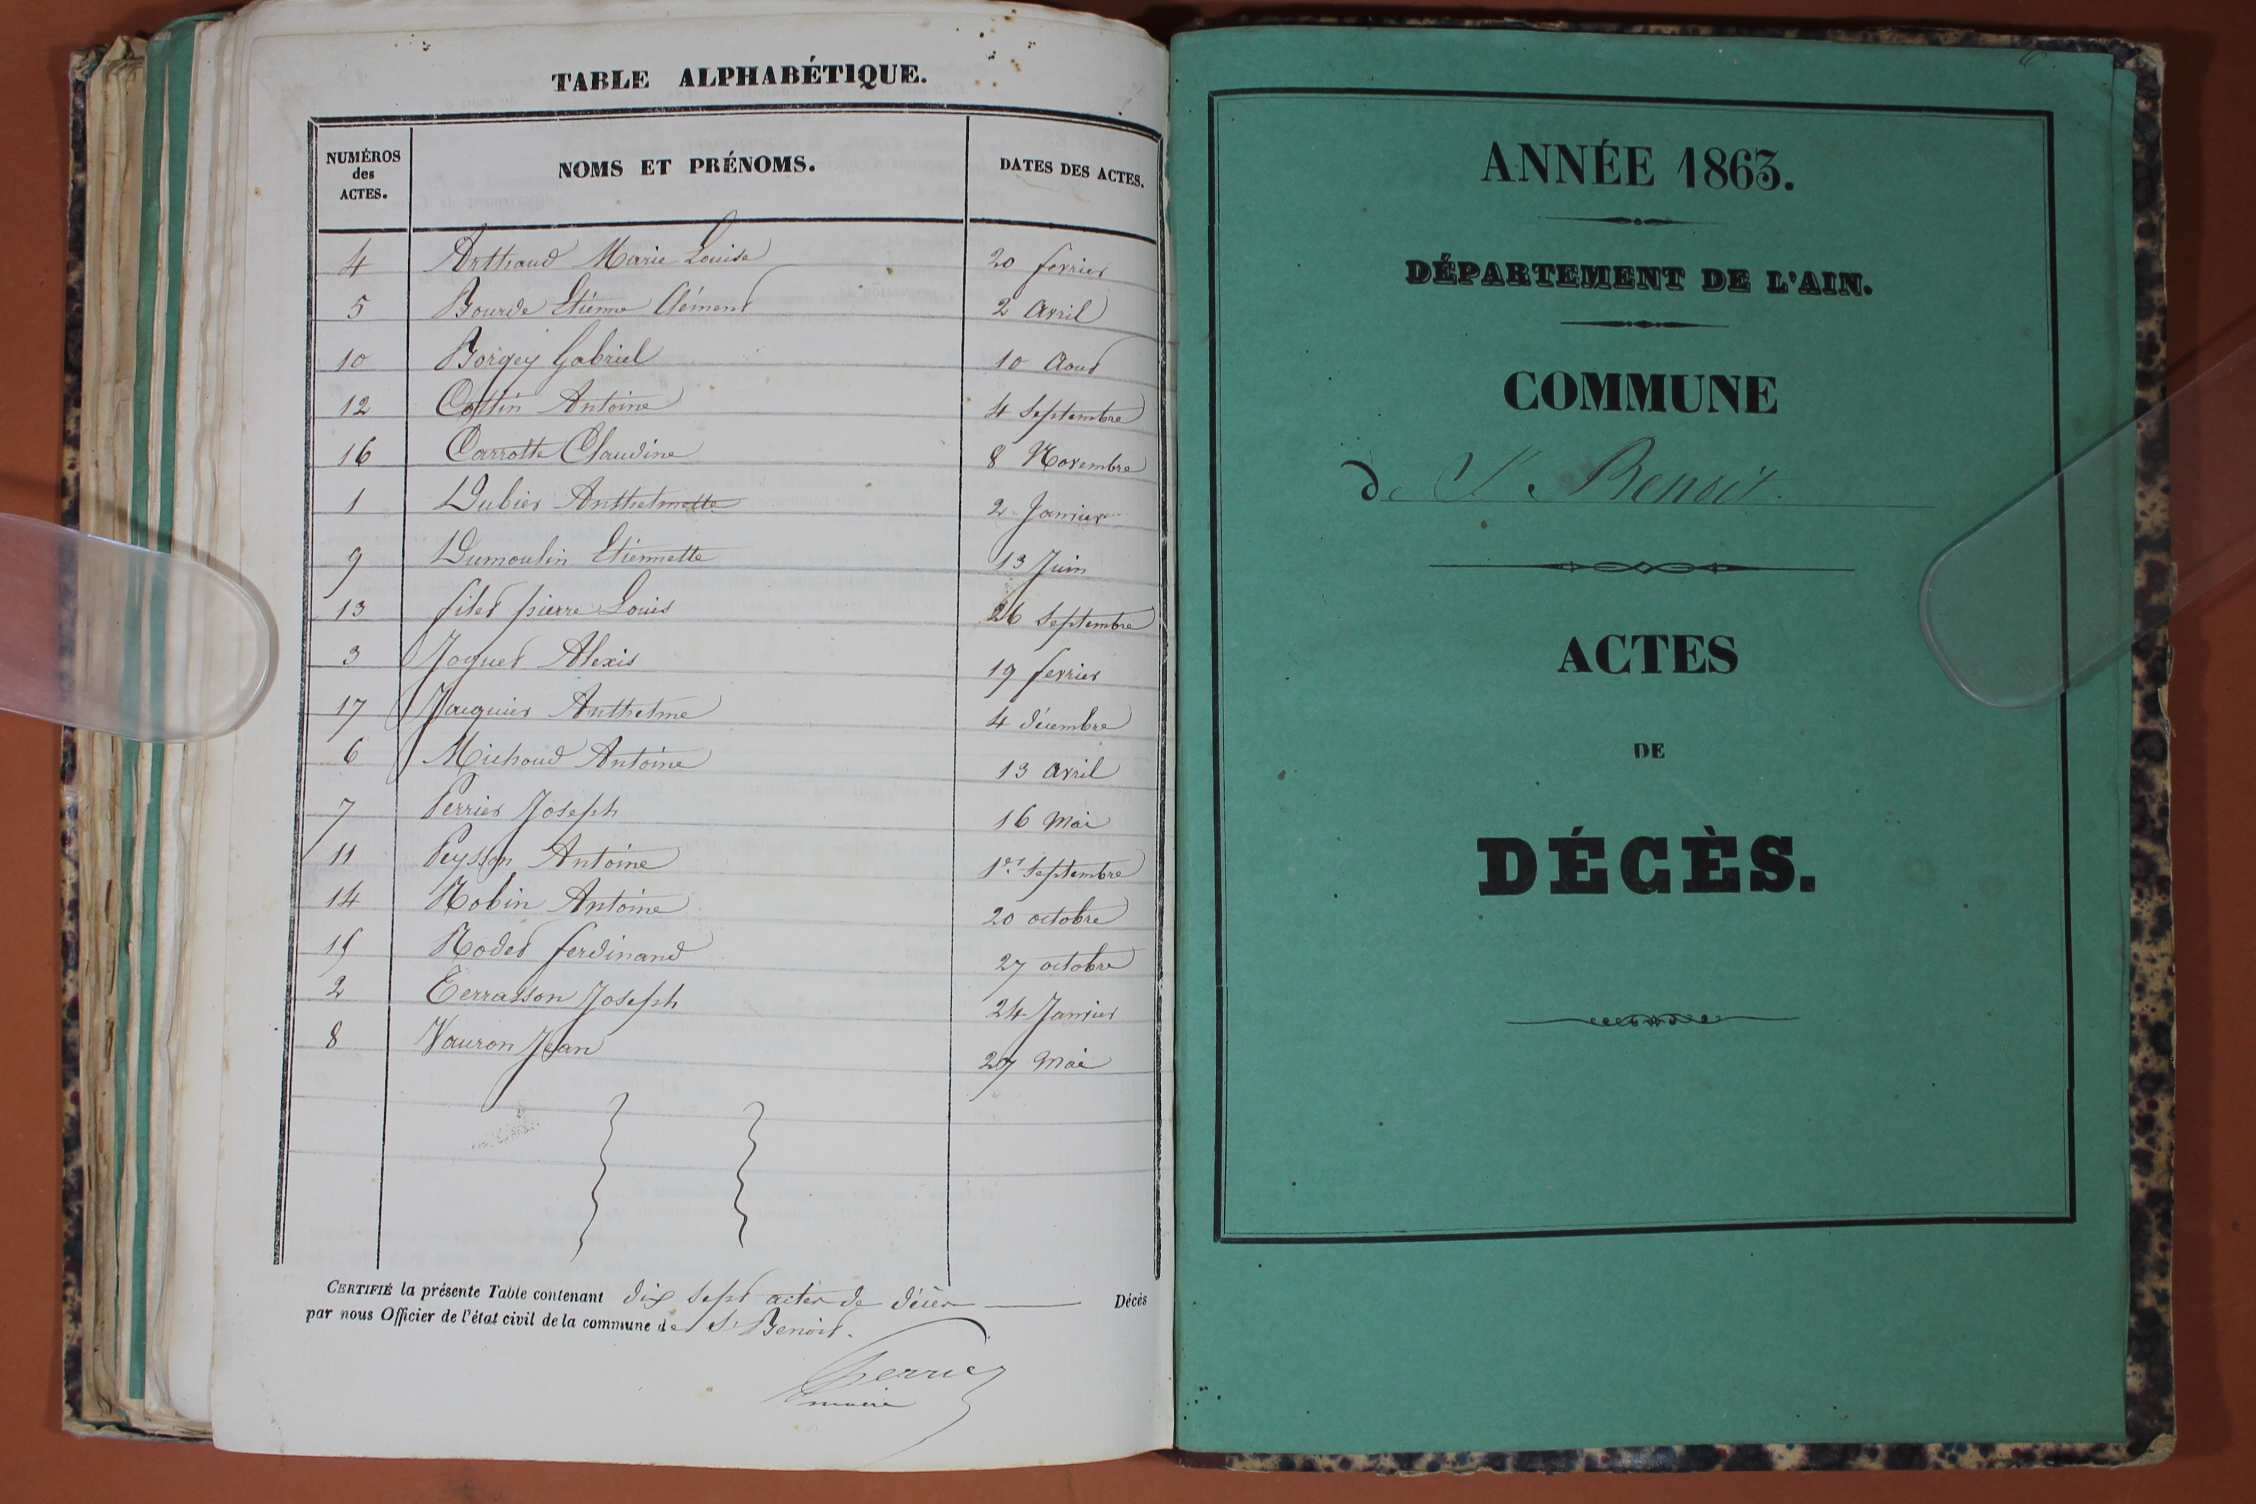 TABLE ALPHABÉTIQUE.
NUMÉROS des ACTES. NOMS ET PRÉNOMS. DATES DES ACTES.
4 Arthaud Marie Louise 20 fevrier
5 Bourde Etienne Clément 2 avril
10 Borgey Gabriel 10 Aout
12 Cottin Antoine 4 Septembre
16 Carrotte Claudine 8 Novembre
1 Dubier Anthelmette 2 Janvier
9 Dumoulin Etiennette 13 Juin
13 filet pierre Louis 26 Septembre
3 Joguet Alexis 19 fevrier
17 Jacquier Anthelme 4 décembre
6 Michoud Antoine 13 avril
7 Perrier Joseph 16 mai
11 Peysson Antoine 1er Septembre
14 Robin Antoine 20 octobre
15 Rodet ferdinand 27 octobre
2 Terrasson Joseph 24 Janvier
8 Vauron Jean 27 mai
CERTIFIÉ la présente Table contenant dix sept actes de décès Décès
par nous Officier de l'état civil de la commune de St Benoit.
maire
ANNÉE 1863.
DÉPARTEMENT DE L'AIN.
COMMUNE
de St Benoit.
ACTES
DE
DÉCÈS.